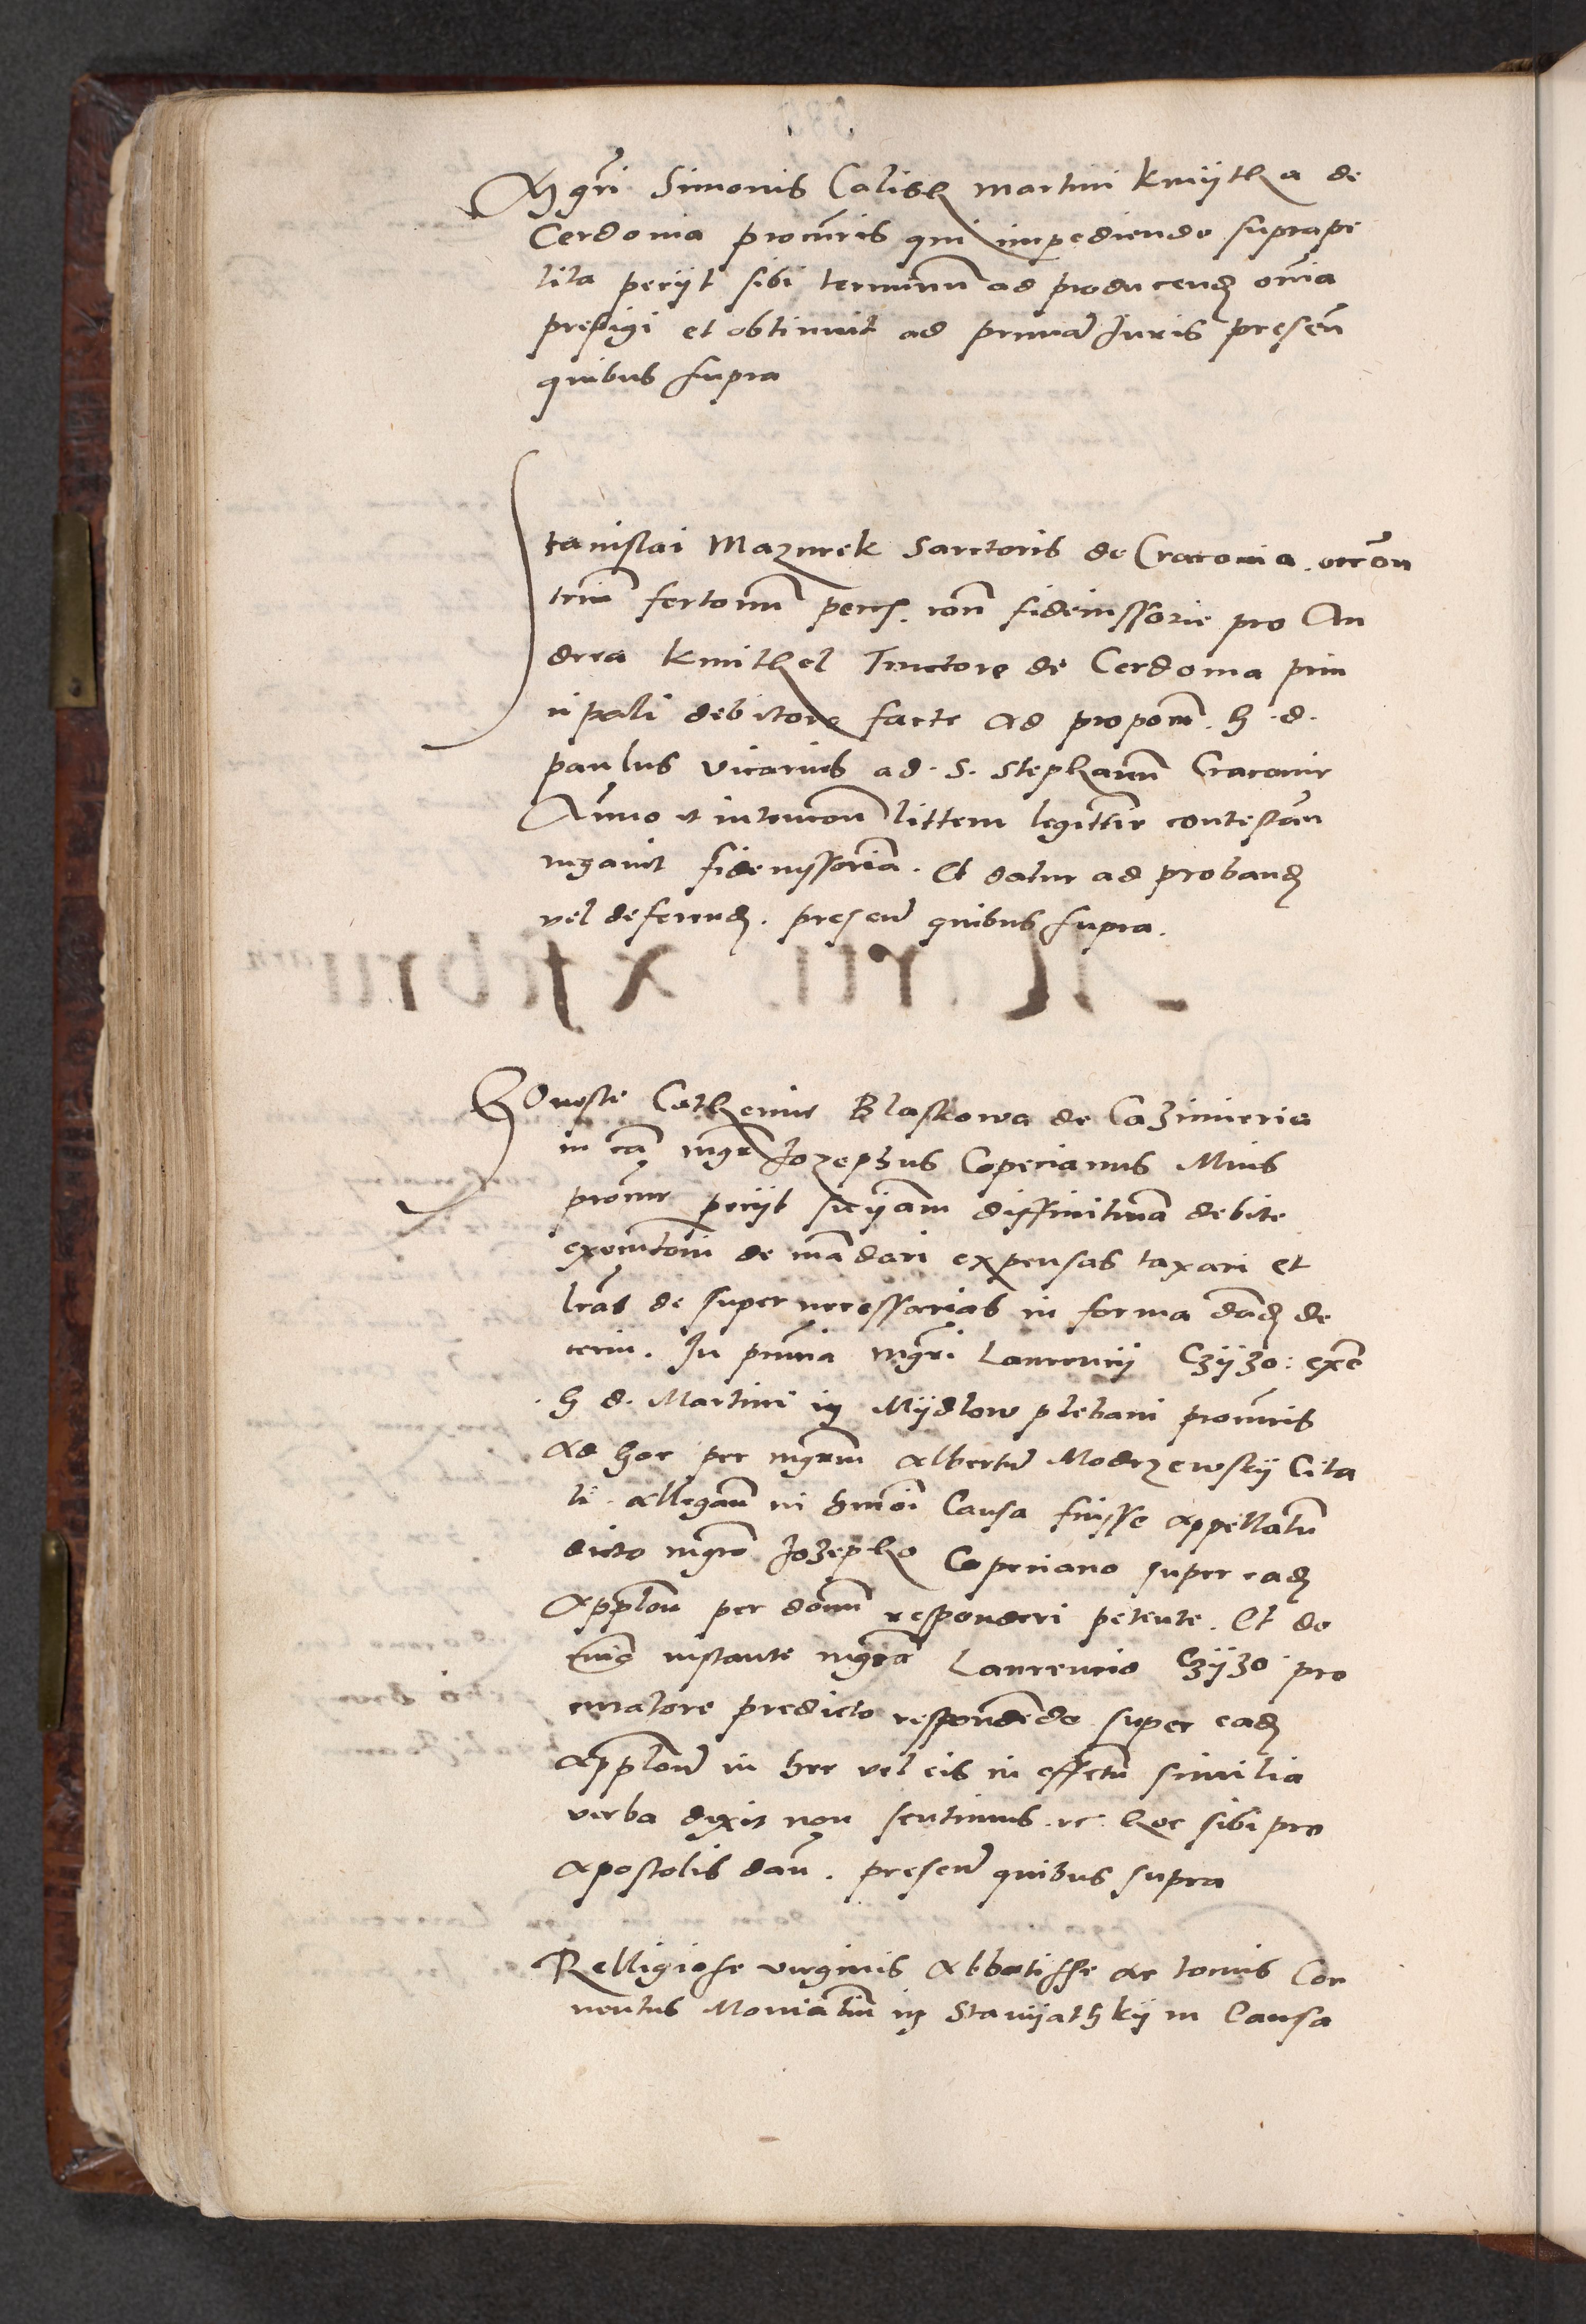 Mgri Simonis Calish martini kmijtha de
Cerdonia procuris qui impediendo suprape
tita petijt sibi terminum ad producend omnia
prefigi et obtinuit ad primam Juris presen
quibus supra
Stanislai Mazurek Sartoris de Cracovia
trium fertonum fideiussorie pro An
drea kmithel Tinctore de Cerdonia prin
cipali debitore facte ad proponen. h. d.
paulus vicarius ad. S. Stephanum Cracovie
Animo et intencion littem legittime contestan
negavit fideiussoriam. Et datur ad proband
vel deferend. presen quibus supra.
Honeste Catherine Blaskowa de Cazimieria
in cam mgr Jozephus Copecianus
procur petijt sniam diffinitivam debite
execucioni de mandari expensas taxari et
lras de super necessarias in forma dand de
cerni. In pncia mgri Laurencij Czijzo:
h d. Martini in Mijdlow plebani procuris
ad hoc per mgrum albertum Modrzewskij Cita
ti. allegan in hmoi Causa fuisse appellatum
dicto mgro Jozepho Copeciano super ead
applon per domnum responderi petente. Et do
minus instante mgro Laurencio Czijzo pro
curatore predicto respondendo super ead
applone in hec vel eis in effectu similia
verba dixit non sentimus. etc. hoc sibi pro
apostolis dan. presen quibus supra
Relligiose virginis abbatisse ac tocius Con
ventus Monialium in Stanijathkij in Causa